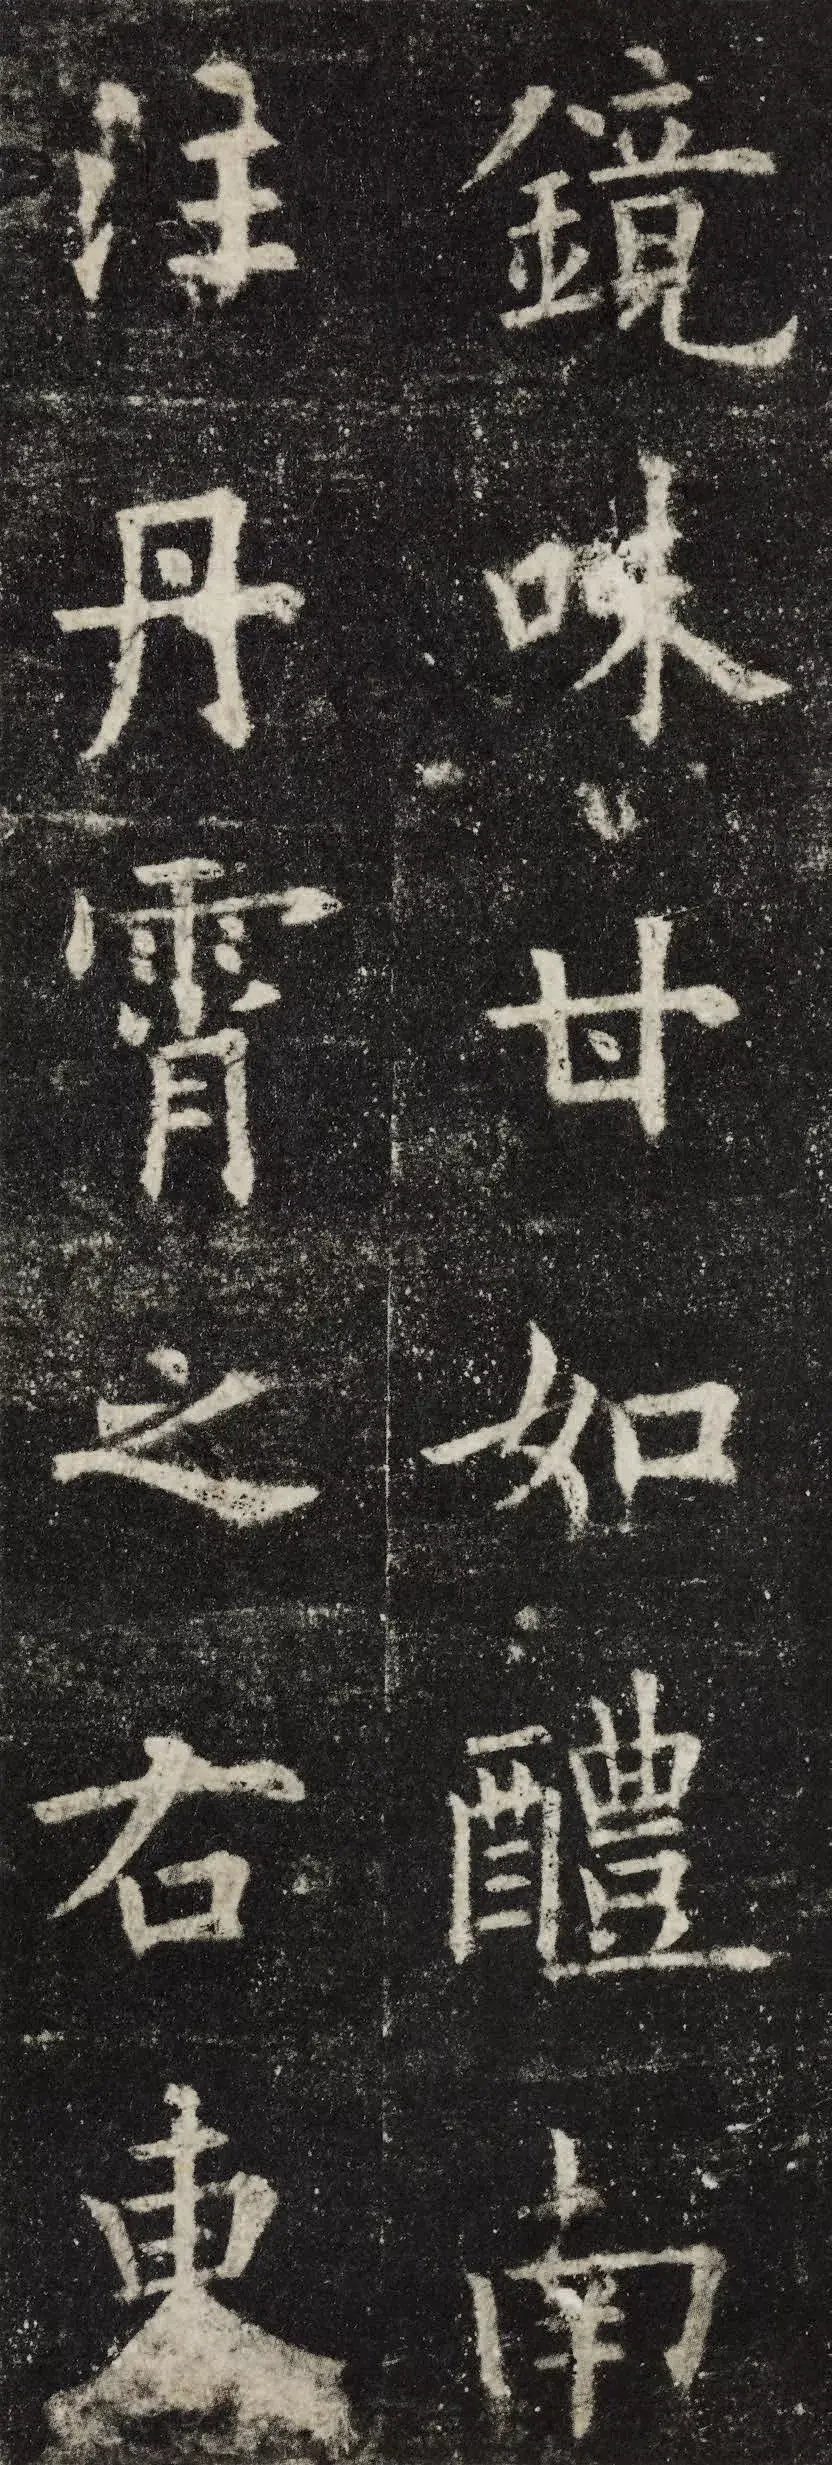 鏡味甘如醴南
注丹霄之右東